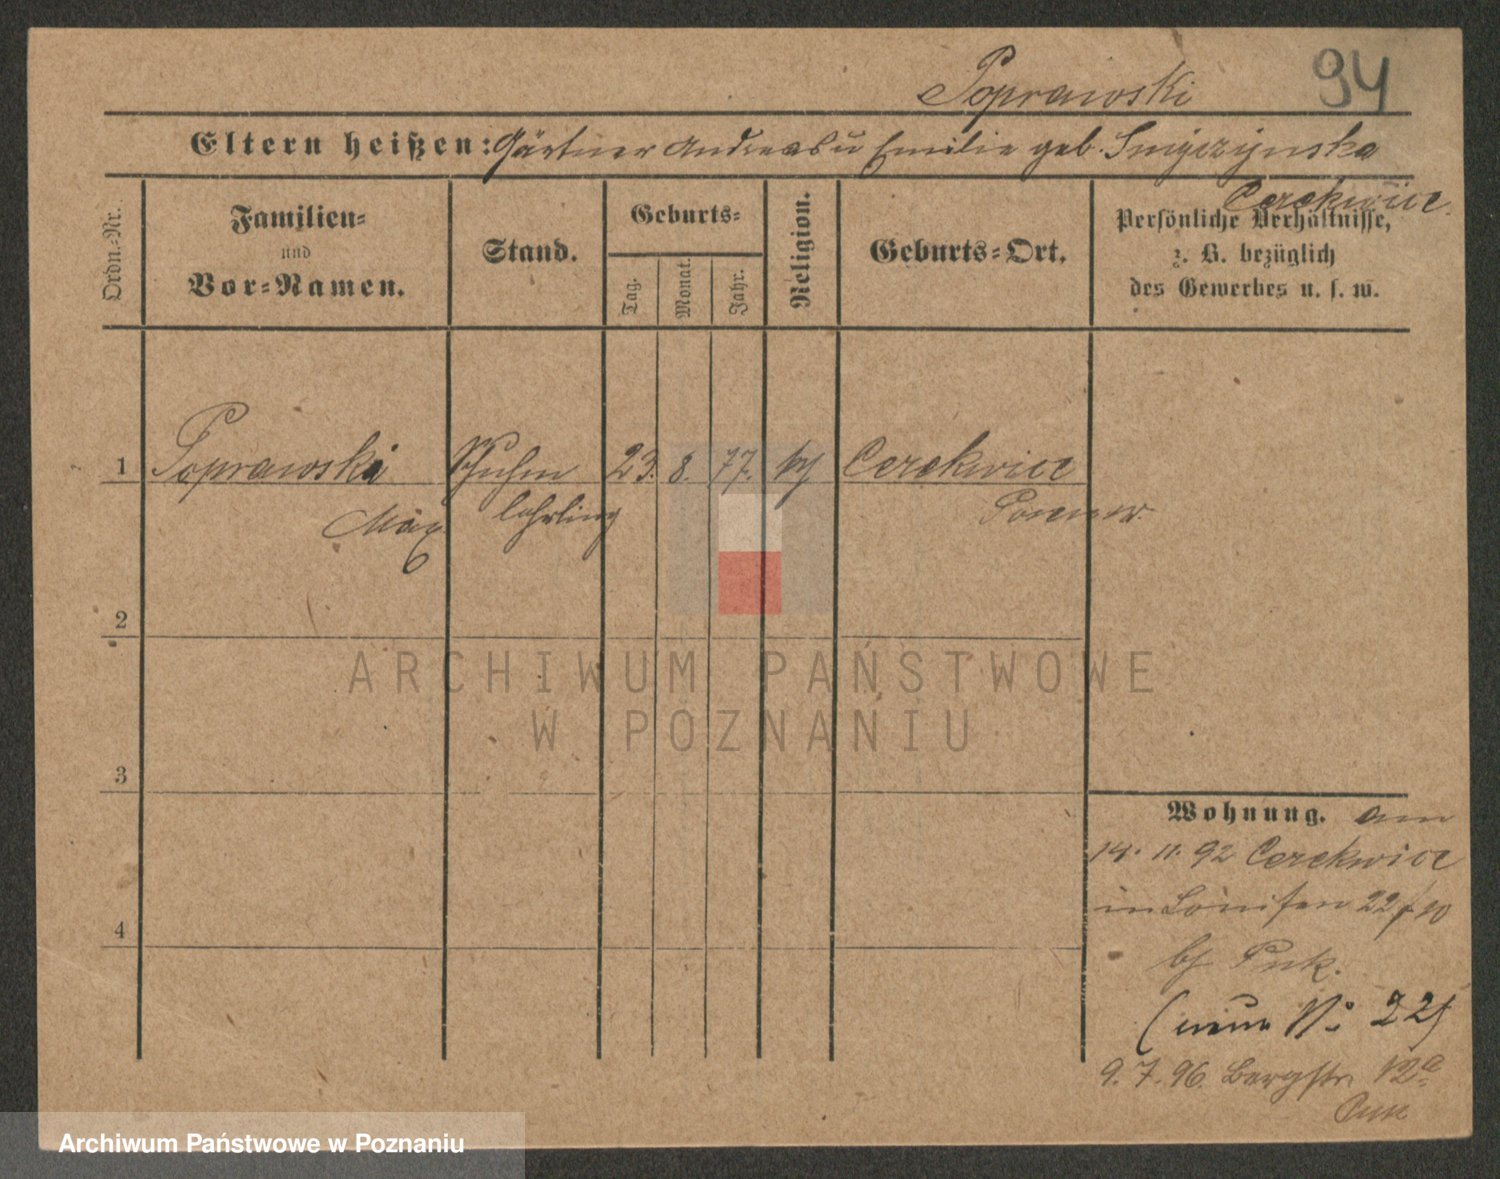 94
Poprawski
Eltern heißen: Gärtner Andreas u Emilie geb. Smyczynska
Cerekwice.
Ordn.-Nr.
Familien-
und
Vor-Namen.
Stand.
Geburts-
Tag.
Monat.
Jahr.
Religion.
Geburts-Ort.
Persönliche Verhältnisse,
z. B. bezüglich
des Gewerbes u. s. w.
1 Poprawski Schuhm 23. 8. 77. Cerekwice
Max lehrling
2
3
4
Wohnung. am
14. 11. 92 Cerekwice
in 22/10
(neue No 22)
9. 7. 96. Bergstr. 12a
ARCHIWUM PAŃSTWOWE
W POZNANIU
Archiwum Państwowe w Poznaniu